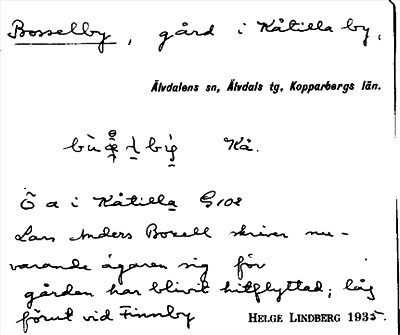 Bosselby, gård i Kåtilla by,
Älvdalens sn, Älvdals tg, Kopparbergs län.
Kå.
Õ a i Kåtilla G108
Lars Anders Bosell skriver nu-
varande ägaren sig för
gården har blivit hitflyttad; låg
förut vid Finnby
HELGE LINDBERG 1935.